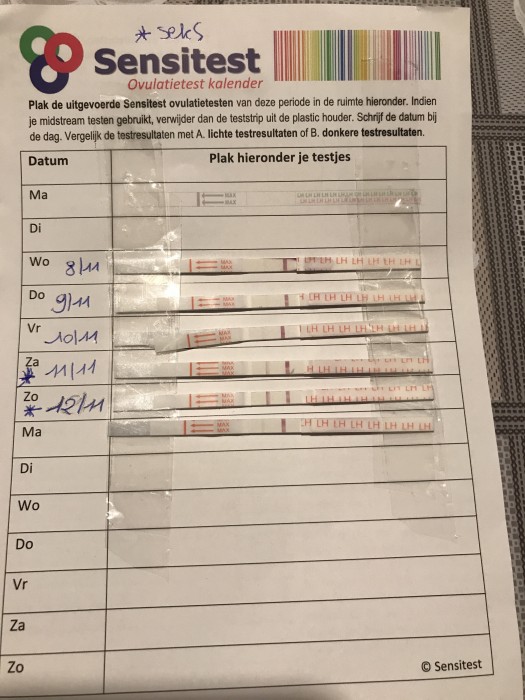 * seks
Sensitest
Ovulatietest kalender
Plak de uitgevoerde Sensitest ovulatietesten van deze periode in de ruimte hieronder. Indien
je midstream testen gebruikt, verwijder dan de teststrip uit de plastic houder. Schrijf de datum bij
de dag. Vergelijk de testresultaten met A. lichte testresultaten of B. donkere testresultaten.
Datum Plak hieronder je testjes
Ma MAX LH LH LH LH LH LH LH LH
MAX
Di
Wo 8/11 MAX LH LH LH LH LH LH LH L
MAX
Do 9/11 MAX H LH LH LH LH LH LH LH
MAX
Vr 10/11 MAX LH LH LH LH LH LH LH
MAX
Za * 11/11 MAX H LH LH LH LH LH LH
MAX
Zo * 12/11 MAX LH LH LH LH LH LH LH
MAX
Ma MAX H LH LH LH LH LH LH LH
MAX
Di
Wo
Do
Vr
Za
Zo © Sensitest